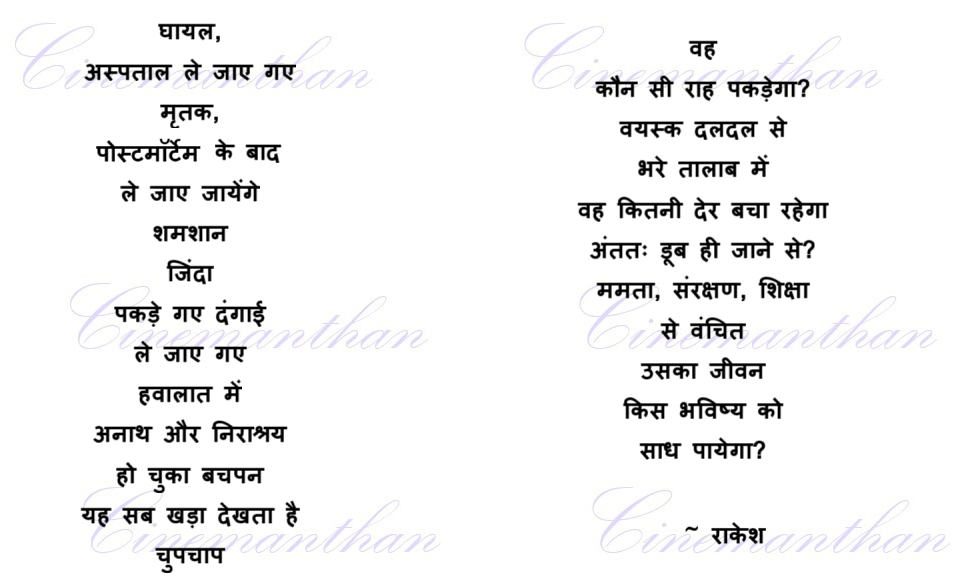 घायल,
अस्पताल ले जाए गए
मृतक,
पोस्टमॉर्टेम के बाद
ले जाए जायेंगे
शमशान
जिंदा
पकड़े गए दंगाई
ले जाए गए
हवालात में
अनाथ और निराश्रय
हो चुका बचपन
यह सब खड़ा देखता है
चुपचाप
वह
कौन सी राह पकड़ेगा?
वयस्क दलदल से
भरे तालाब में
वह कितनी देर बचा रहेगा
अंततः डूब ही जाने से?
ममता, संरक्षण, शिक्षा
से वंचित
उसका जीवन
किस भविष्य को
साध पायेगा?
~ राकेश
Cinemanthan
Cinemanthan
Cinemanthan
Cinemanthan
Cinemanthan
Cinemanthan